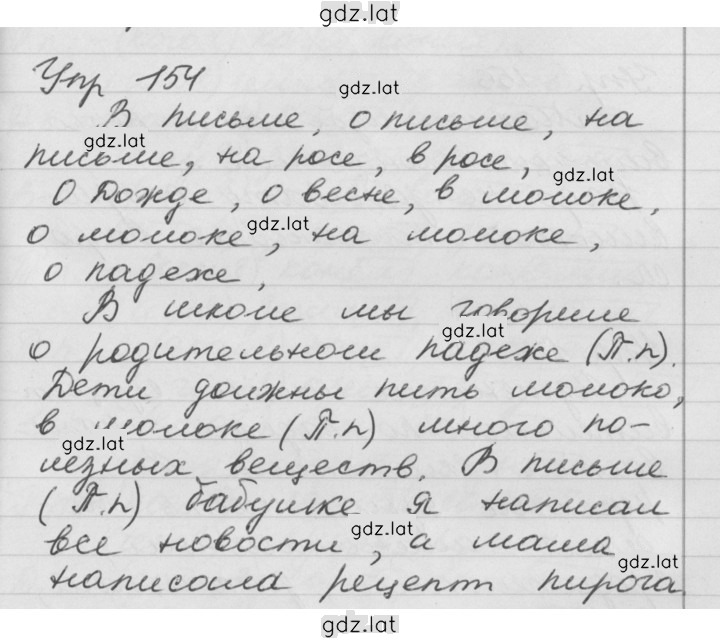 gdz.lat
Упр 154
gdz.lat
В письме, о письме, на
gdz.lat
письме, на росе, в росе,
gdz.lat
О дожде, о весне, в молоке,
gdz.lat
о молоке, на молоке,
о падеже,
В школе мы говорим
gdz.lat
о родительном падеже (П.п).
Дети должны пить молоко,
в молоке (П.п) много по-
gdz.lat
лезных веществ. В письме
(П.п) бабушке я написал
gdz.lat
все новости, а мама
gdz.lat
написала рецепт пирога
gdz.lat